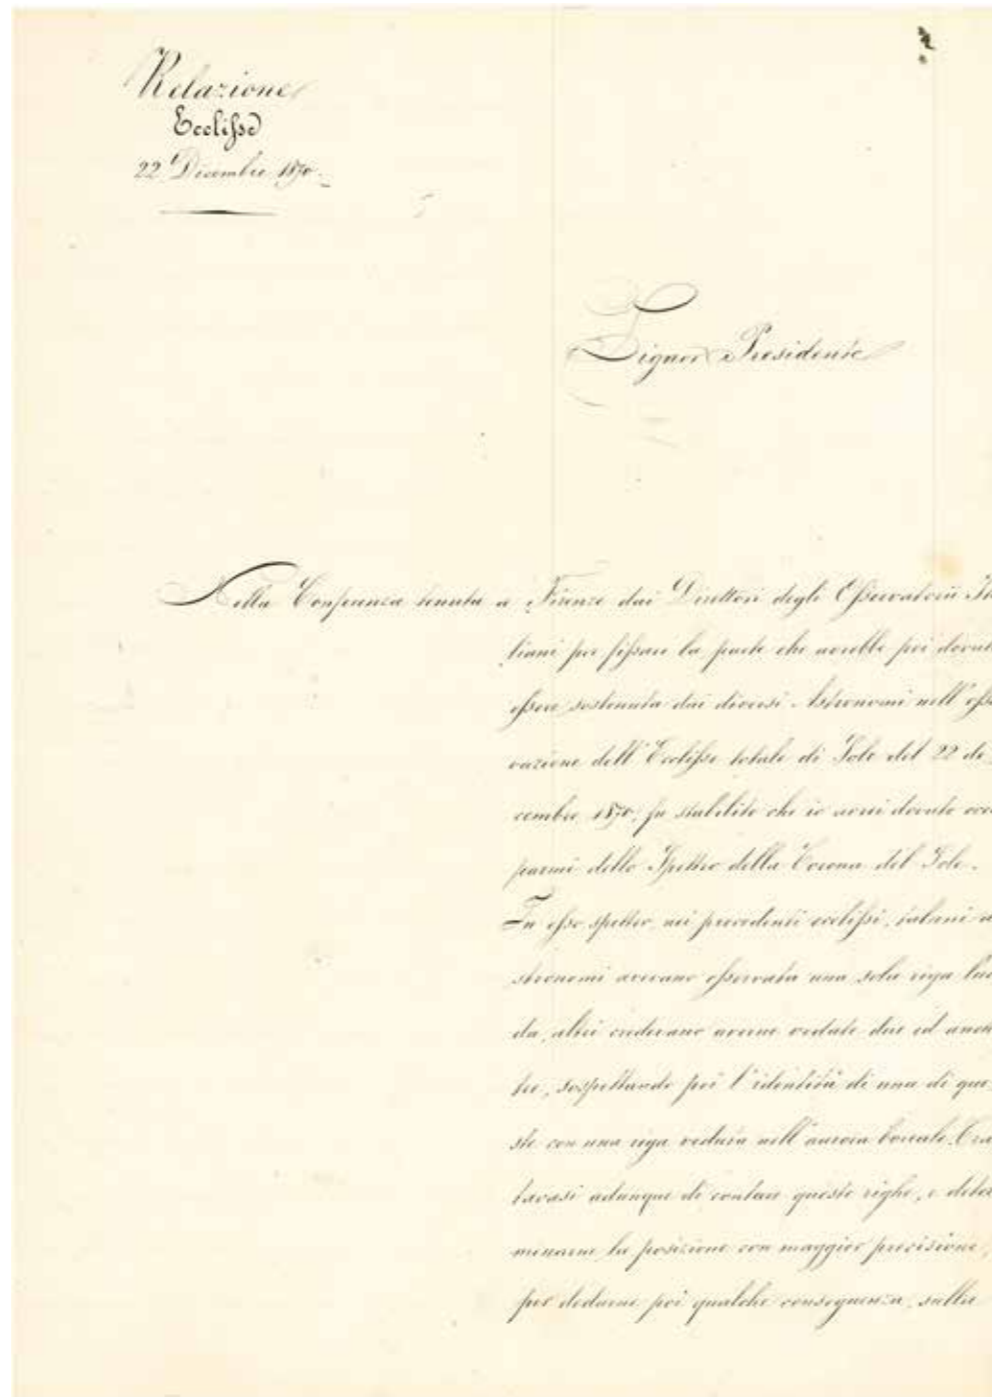 Relazione
Ecclisse
22 Dicembre 1870.
Signor Presidente
Nella Conferenza tenuta a Firenze dai Direttori degli Osservatorii Ita
liani per fissare la parte che avrebbe poi dovut
essere sostenuta dai diversi Astronomi nell'osse
vazione dell'Ecclisse totale di Sole del 22 di
cembre 1870, fu stabilito che io avrei dovuto occu
parmi dello Spettro della Corona del Sole.
In esso spettro, nei precedenti ecclissi, taluni a
stronomi avevano osservata una sola riga luc
da, altri credevano averne vedute due ed anch
tre, sospettando poi l'identità di una di que
ste con una riga veduta nell'aurora boreale. Trat
tavasi adunque di contare queste righe, e deter
minarne la posizione con maggior precisione,
per dedurne poi qualche conseguenza sulla